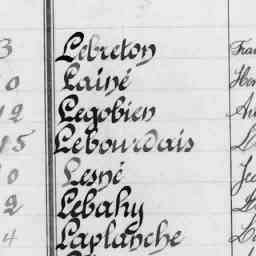 3 Lebreton Fra
0 Lainé Hen
12 Legobien
15 Lebourdais
0 Lesné
2 Lebahy
4 Laplanche